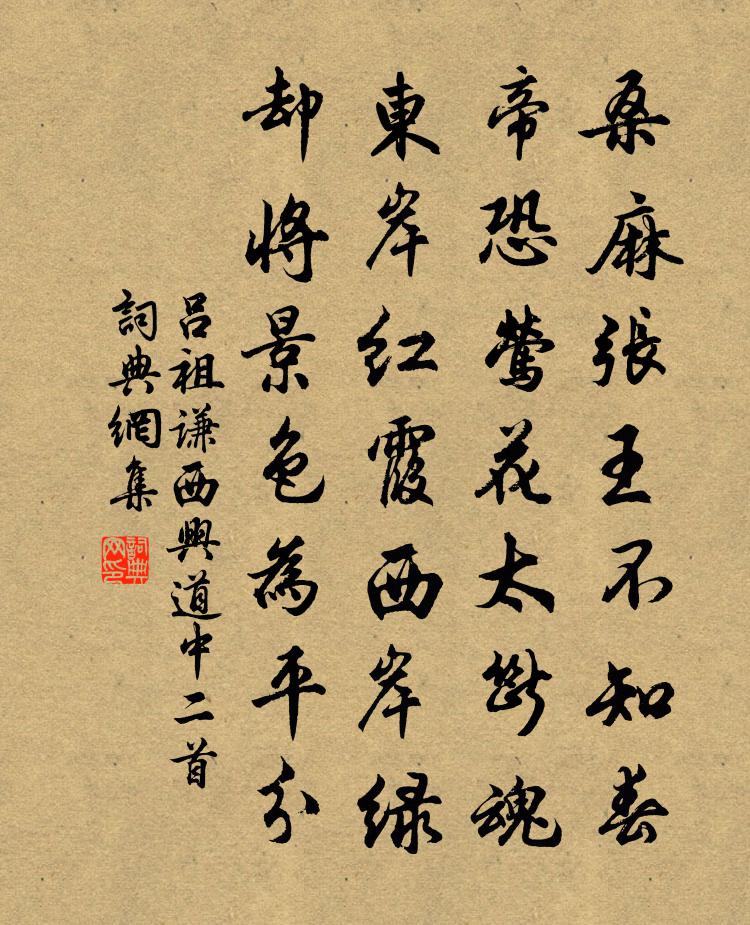 桑麻張王不知春
帝恐鶯花太斷魂
東岸紅霞西岸緑
却將景色為平分
呂祖謙西興道中二首
詞典網集
詞典網印